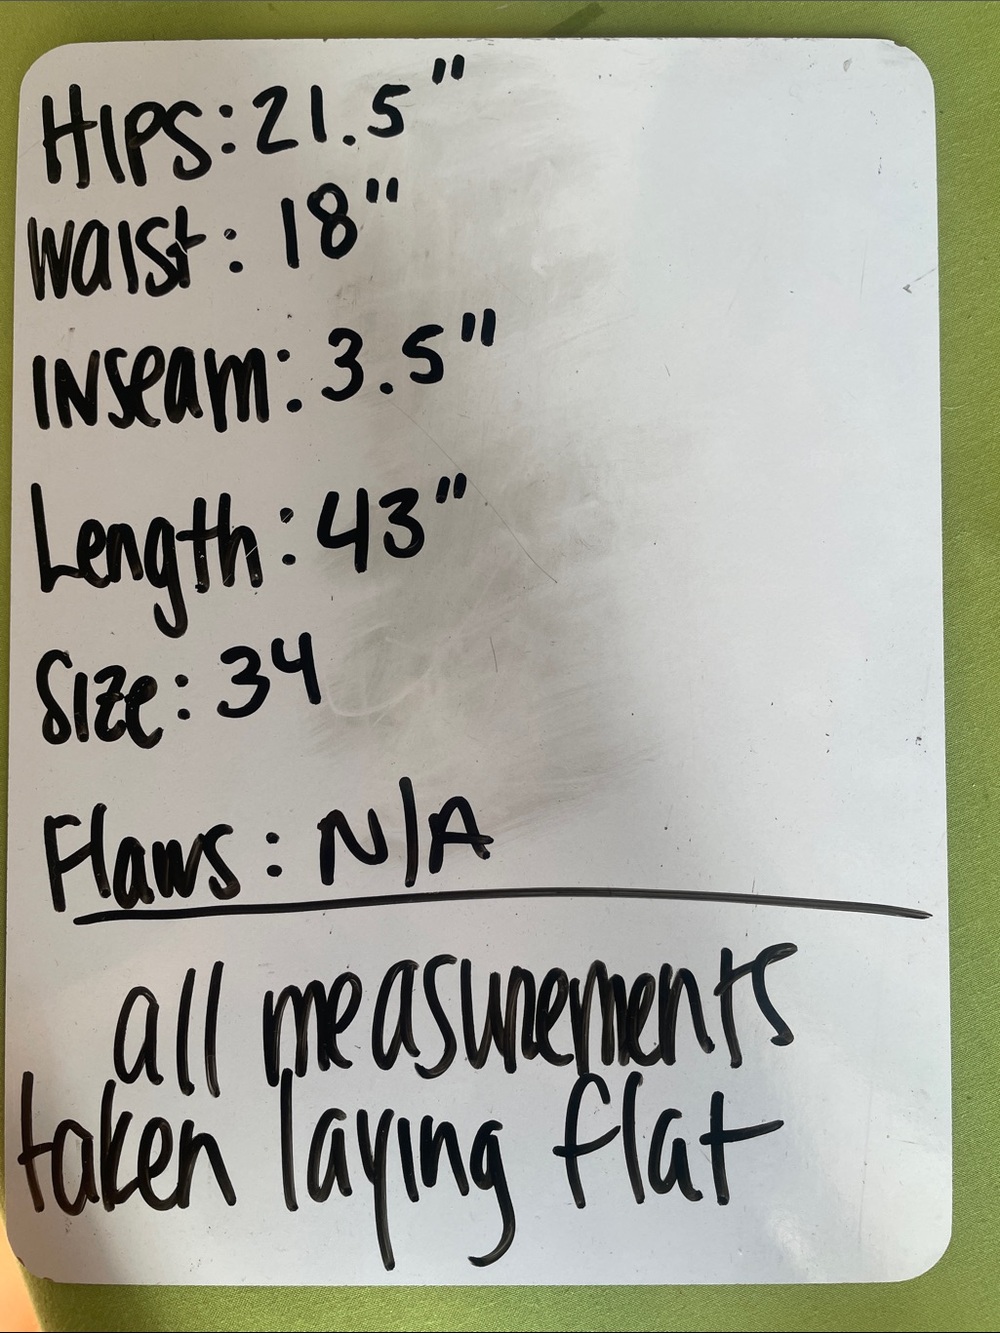 HIPS: 21.5"
Waist: 18"
INseam: 3.5"
Length: 43"
Size: 34
Flaws: N/A
all measurements
taken laying flat